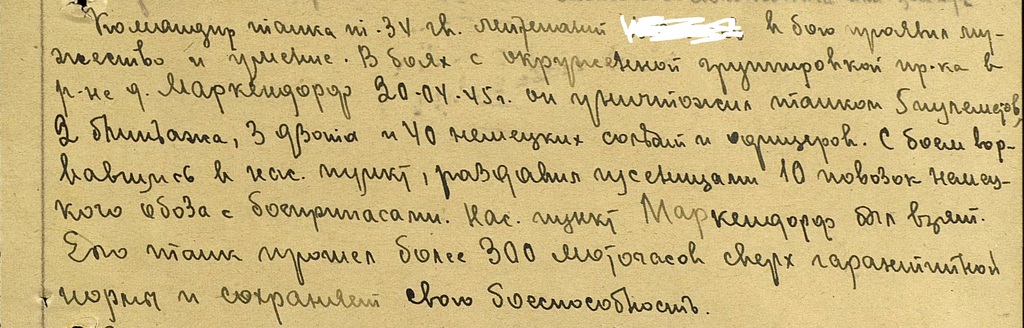 Командир танка т-34 гв. лейтенант в бою проявил му-
жество и умение. В боях с окруженной группировкой пр-ка в
р-не д. Маркендорф 20.04.45г. он уничтожил танком 5 пулеметов,
2 блиндажа, 3 дзота и 40 немецких солдат и офицеров. С боем вор-
вавшись в нас. пункт, раздавил гусеницами 10 повозок немец-
кого обоза с боеприпасами. Нас. пункт Маркендорф был взят.
Его танк прошел более 300 моточасов сверх гарантийной
нормы и сохраняет свою боеспособность.